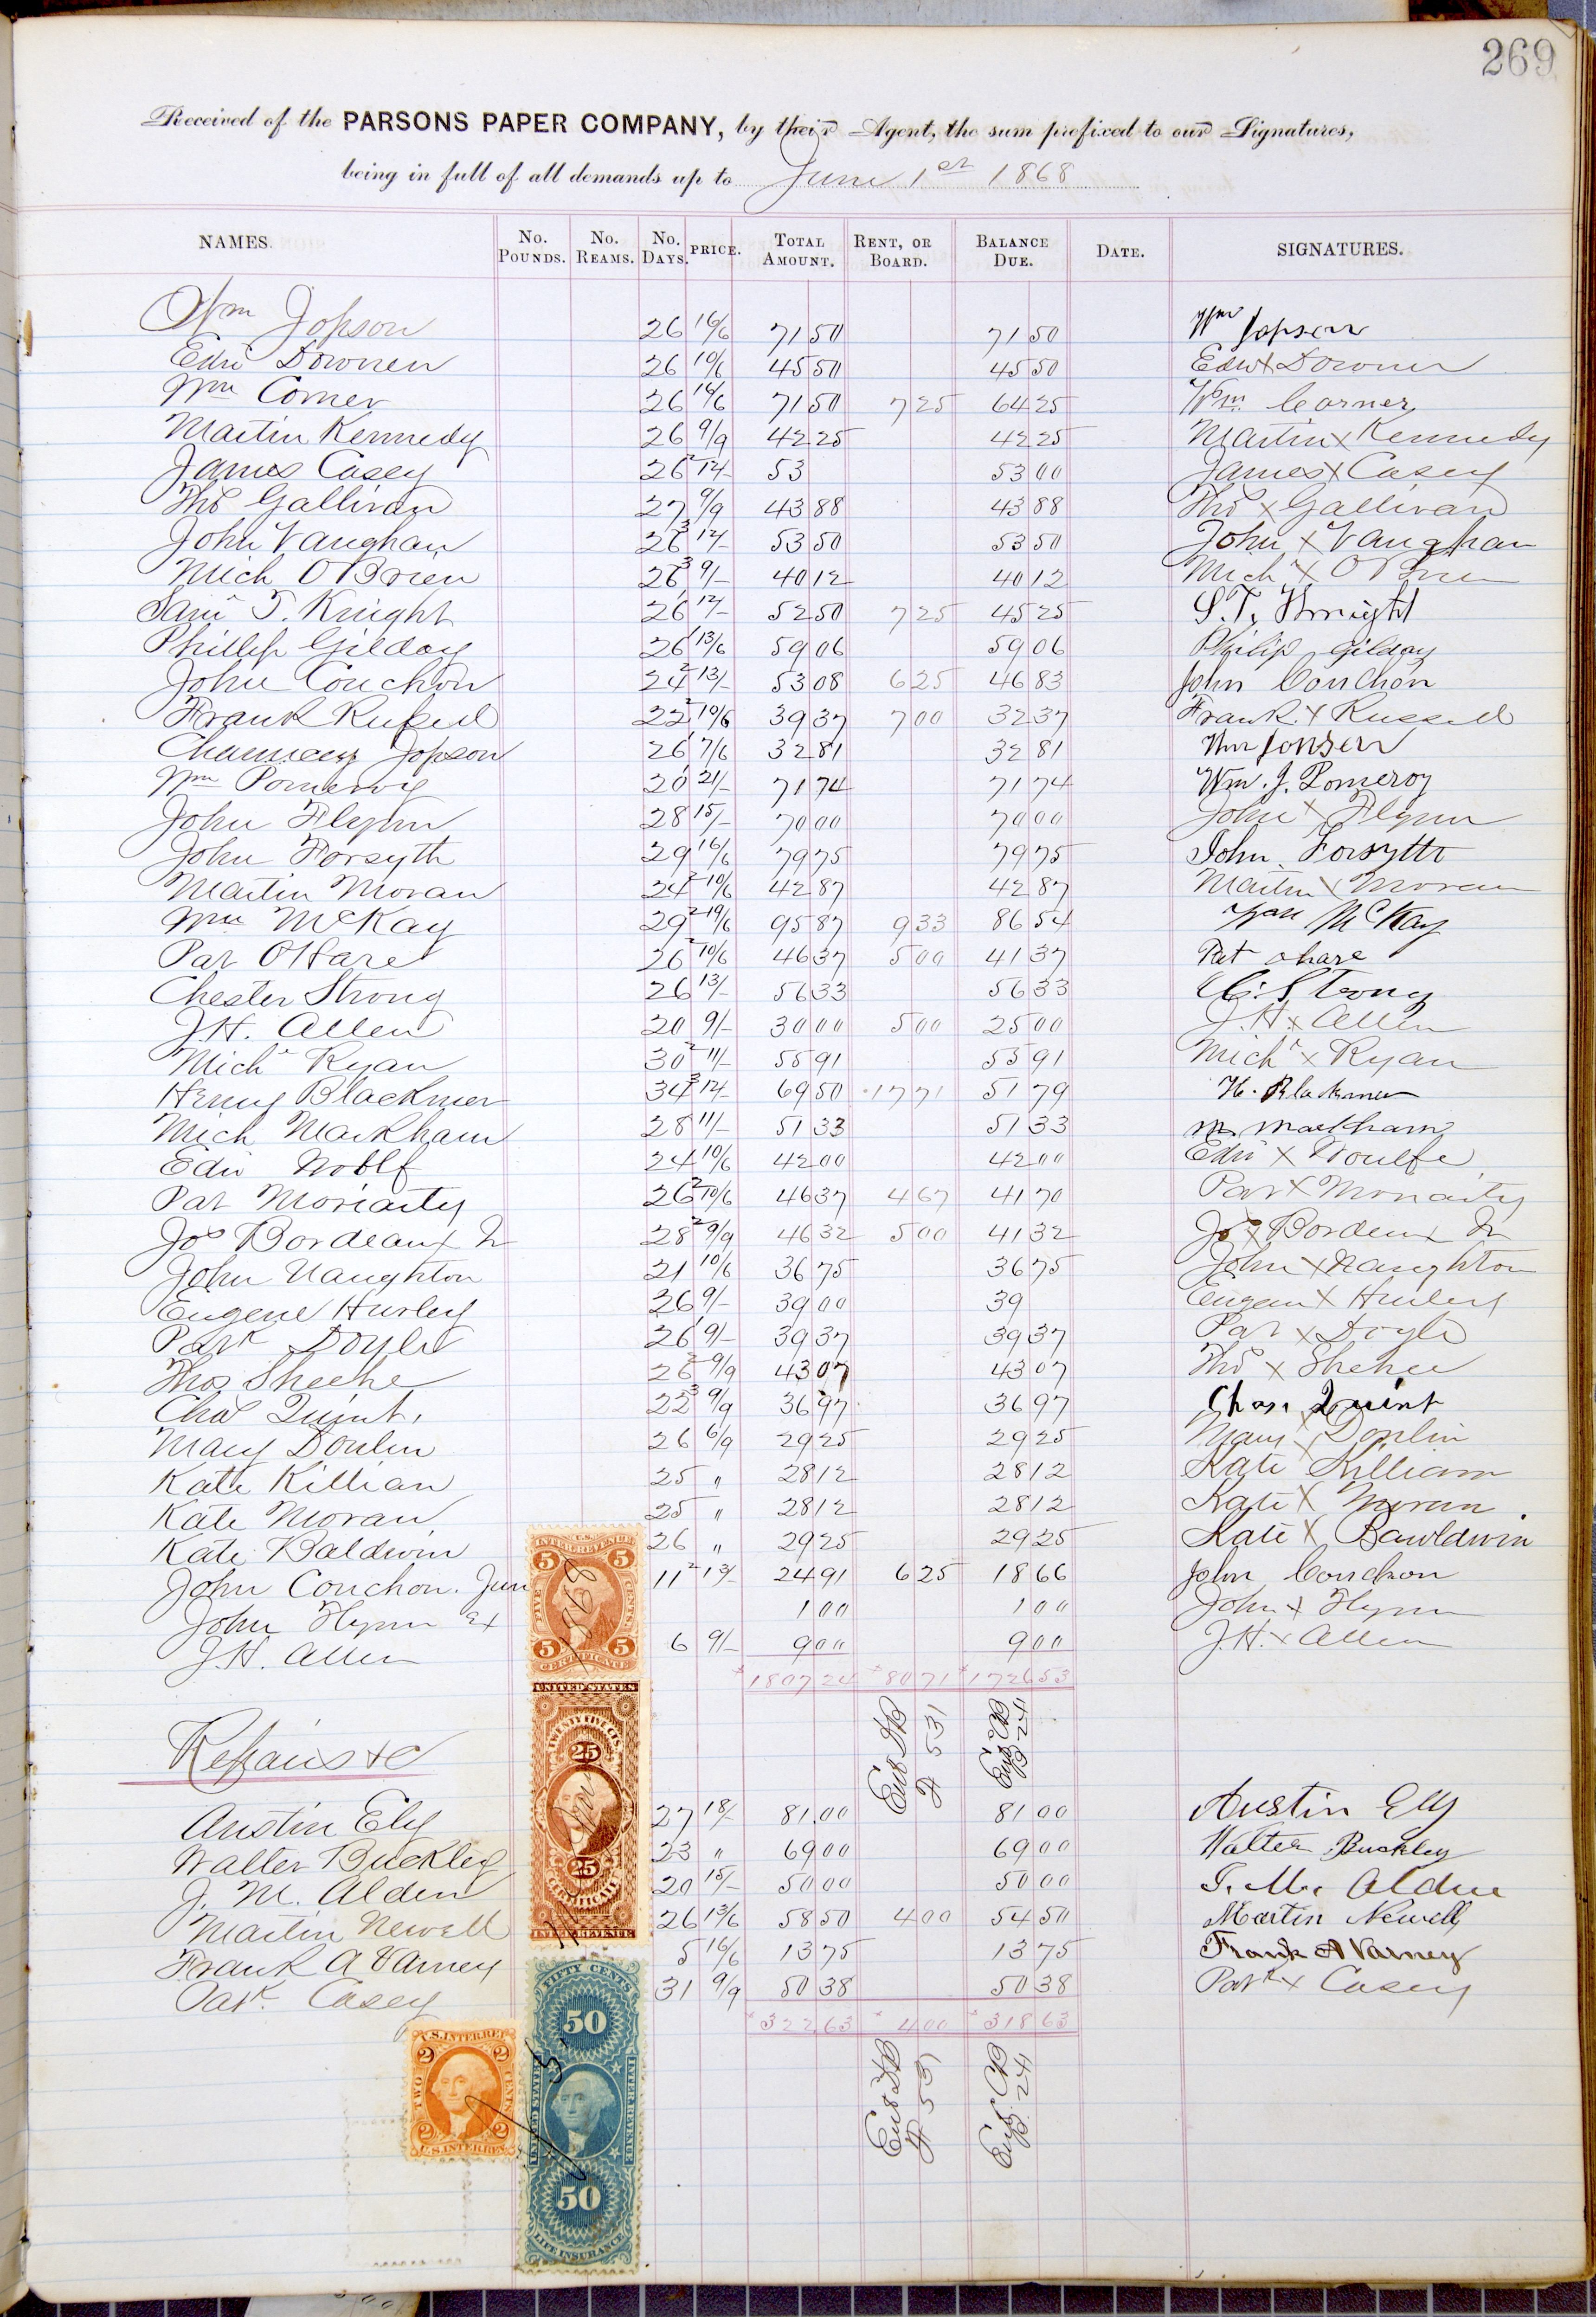 269
Received of the PARSONS PAPER COMPANY, by their Agent, the sum prefixed to our Signatures,
being in full of all demands up to June 1st 1868
NAMES. No. POUNDS. No. REAMS. No. DAYS. PRICE. TOTAL AMOUNT. RENT, OR BOARD. BALANCE DUE. DATE. SIGNATURES.
Wm Jopson 26 16/6 71 50 71 50 Wm Jopson
Edw Downen 26 10/6 45 50 45 50 Edw x Downen
Wm Comer 26 16/6 71 50 7 25 64 25 Wm Corner
Martin Kennedy 26 9/9 42 25 42 25 Martin x Kennedy
James Casey 26 2 12/- 53 53 00 James x Casey
Thos Gallivan 27 9/9 43 88 43 88 Thos x Gallivan
John Vaughan 26 3 12/- 53 50 53 50 John x Vaughan
Mich OBrien 26 3 9/- 40 12 40 12 Mich x OBrien
Saml T. Knight 26 1 12/- 52 50 7 25 45 25 S. T. Knight
Phillip Gilday 26 1 13/6 59 06 59 06 Philip gilday
John Couchon 24 2 13/- 53 08 6 25 46 83 john Couchon
Frank Russell 22 2 10/6 39 37 7 00 32 37 Frank x Russell
Chauncey Jopson 26 1 7/6 32 81 32 81 Wm Jopson
Wm Pomeroy 20 1 21/- 71 74 71 74 Wm. J. Pomeroy
John Flynn 28 15/- 70 00 70 00 John x Flynn
John Forsyth 29 16/6 79 75 79 75 John Forsyth
Martin Moran 24 2 10/6 42 87 42 87 Martin x Moran
Wm McKay 29 2 19/6 95 87 9 33 86 54 Wm McKay
Pat OHare 26 2 10/6 46 37 5 00 41 37 Pat ohare
Chester Strong 26 13/- 56 33 56 33 C. Strong
J.H. Allen 20 9/- 30 00 5 00 25 00 J.H. x Allen
Michl Ryan 30 2 11/- 55 91 55 91 Michl x Ryan
Henry Blackmer 34 3 12/- 69 50 17 71 51 79 H. Blakmer
Mich Markham 28 11/- 51 33 51 33 m markham
Edw Wolff 24 10/6 42 00 42 00 Edw x Woulfe
Pat Moriarty 26 2 10/6 46 37 4 67 41 70 Pat x Moriarty
Jos Bordeaux Jr 28 2 9/9 46 32 5 00 41 32 Jos x Bordeux Jr
John Naughton 21 10/6 36 75 36 75 John x Naughton
Eugene Hurley 26 9/- 39 00 39 Eugene x Hurley
Patk Doyle 26 1 9/- 39 37 39 37 Pat x Doyle
Thos Sheehe 26 2 9/9 43 07 43 07 Thos x Shehee
Chas Quint. 22 3 9/9 36 97 36 97 Chas. Quint
Mary Donlin 26 6/9 29 25 29 25 Mary x Donlin
Kate Killian 25 " 28 12 28 12 Kate x Killiam
Kate Moran 25 " 28 12 28 12 Kate x Moran
Kate Baldwin 26 " 29 25 29 25 Kate x Bawldwin
John Couchon. Jun 11 2 13/- 24 91 6 25 18 66 john Couchon
John Flynn Ex 1 00 1 00 John x Flynn
J.H. Allen 6 9/- 9 00 9 00 J.H. x Allen
1807 24 80 71 1726 53
Ent DB 531
Ent CB 24
Repairs &c
Austin Ely 27 18/- 81.00 81 00 Austin Ely
Walter Buckley 23 " 69 00 69 00 Walter Buckley
J. M. Alden 20 15/- 50 00 50 00 J. M. Alden
Martin Newell 26 13/6 58 50 4 00 54 50 Martin Newell
Frank A Varney 5 16/6 13 75 13 75 Frank A Varney
Patk Casey 31 9/9 50 38 50 38 Patk x Casey
322 63 4 00 318 63
Ent DB 531
Ent CB 24
U.S. INTER. REVENUE
5 5
FIVE CENTS
5 5
CERTIFICATE
1868
UNITED STATES
TWENTY FIVE CTS.
25
25
CERTIFICATE
INTER. REVENUE
FIFTY CENTS
50
UNITED STATES INTER. REVENUE
50
LIFE INSURANCE
U.S. INTER. REV.
2 2
TWO CENTS
2 2
U.S. INTER. REV.